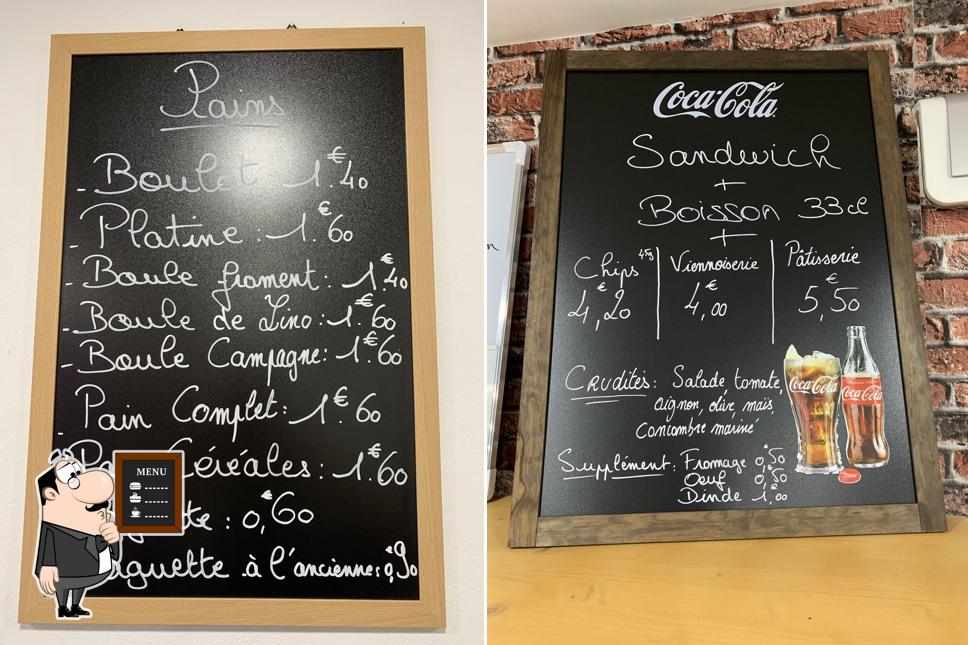 Pains
- Boulot 1.€40
- Platine : 1.€60
- Boule froment : 1.€40
- Boule de Lino : 1.€60
- Boule Campagne : 1.€60
Pain Complet : 1€60
Céréales : 1.€60
te : 0,€60
aguette à l'ancienne : 0,€90
MENU
Coca-Cola
Sandwich
+
Boisson 33cl
+
Chips 45g
4,€20
Viennoiserie
4,€00
Pâtisserie
5,€50
Crudités : Salade tomate,
oignon, olive, maïs,
Concombre mariné
Supplément : Fromage 0,€50
Oeuf 0,€50
Dinde 1,€00
Coca-Cola
Coca-Cola